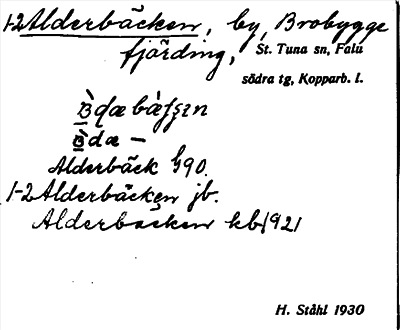 1-2 Alderbäcken, by, Brobygge
fjärding, St. Tuna sn, Falu
södra tg, Kopparb. l.
Alderbäck G90.
1-2 Alderbäcken jb.
Alderbäcken kb1921
H. Ståhl 1930